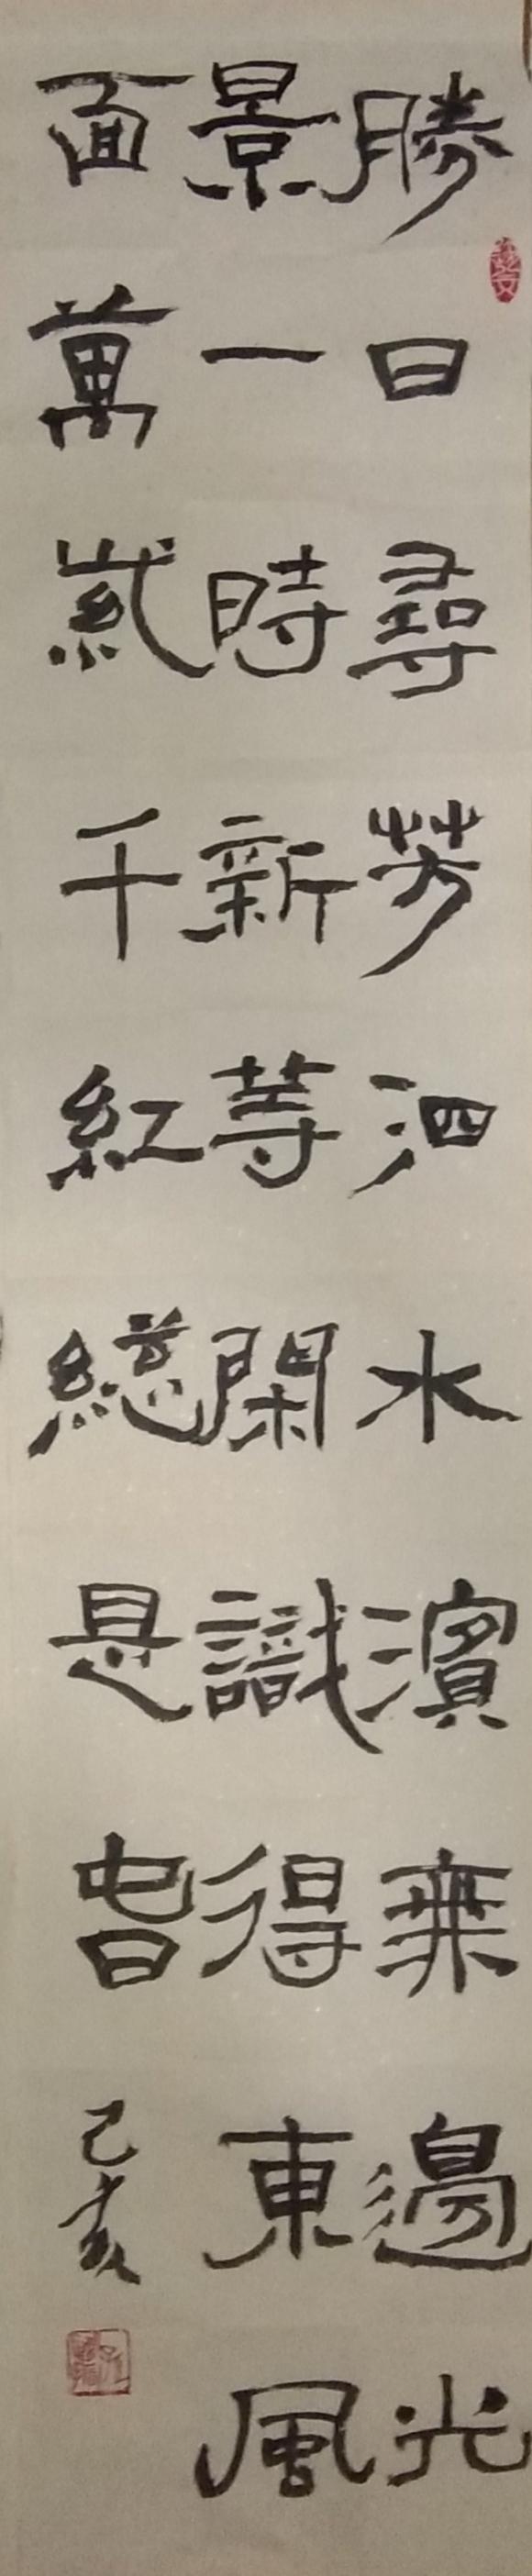 勝日尋芳泗水濱無邊光
景一時新等閑識得東風
面萬紫千紅總是春
己亥